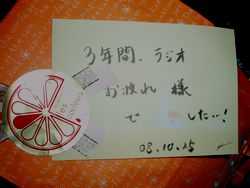 3年間、ラジオ
お疲れ様
でした…!
08.10.15